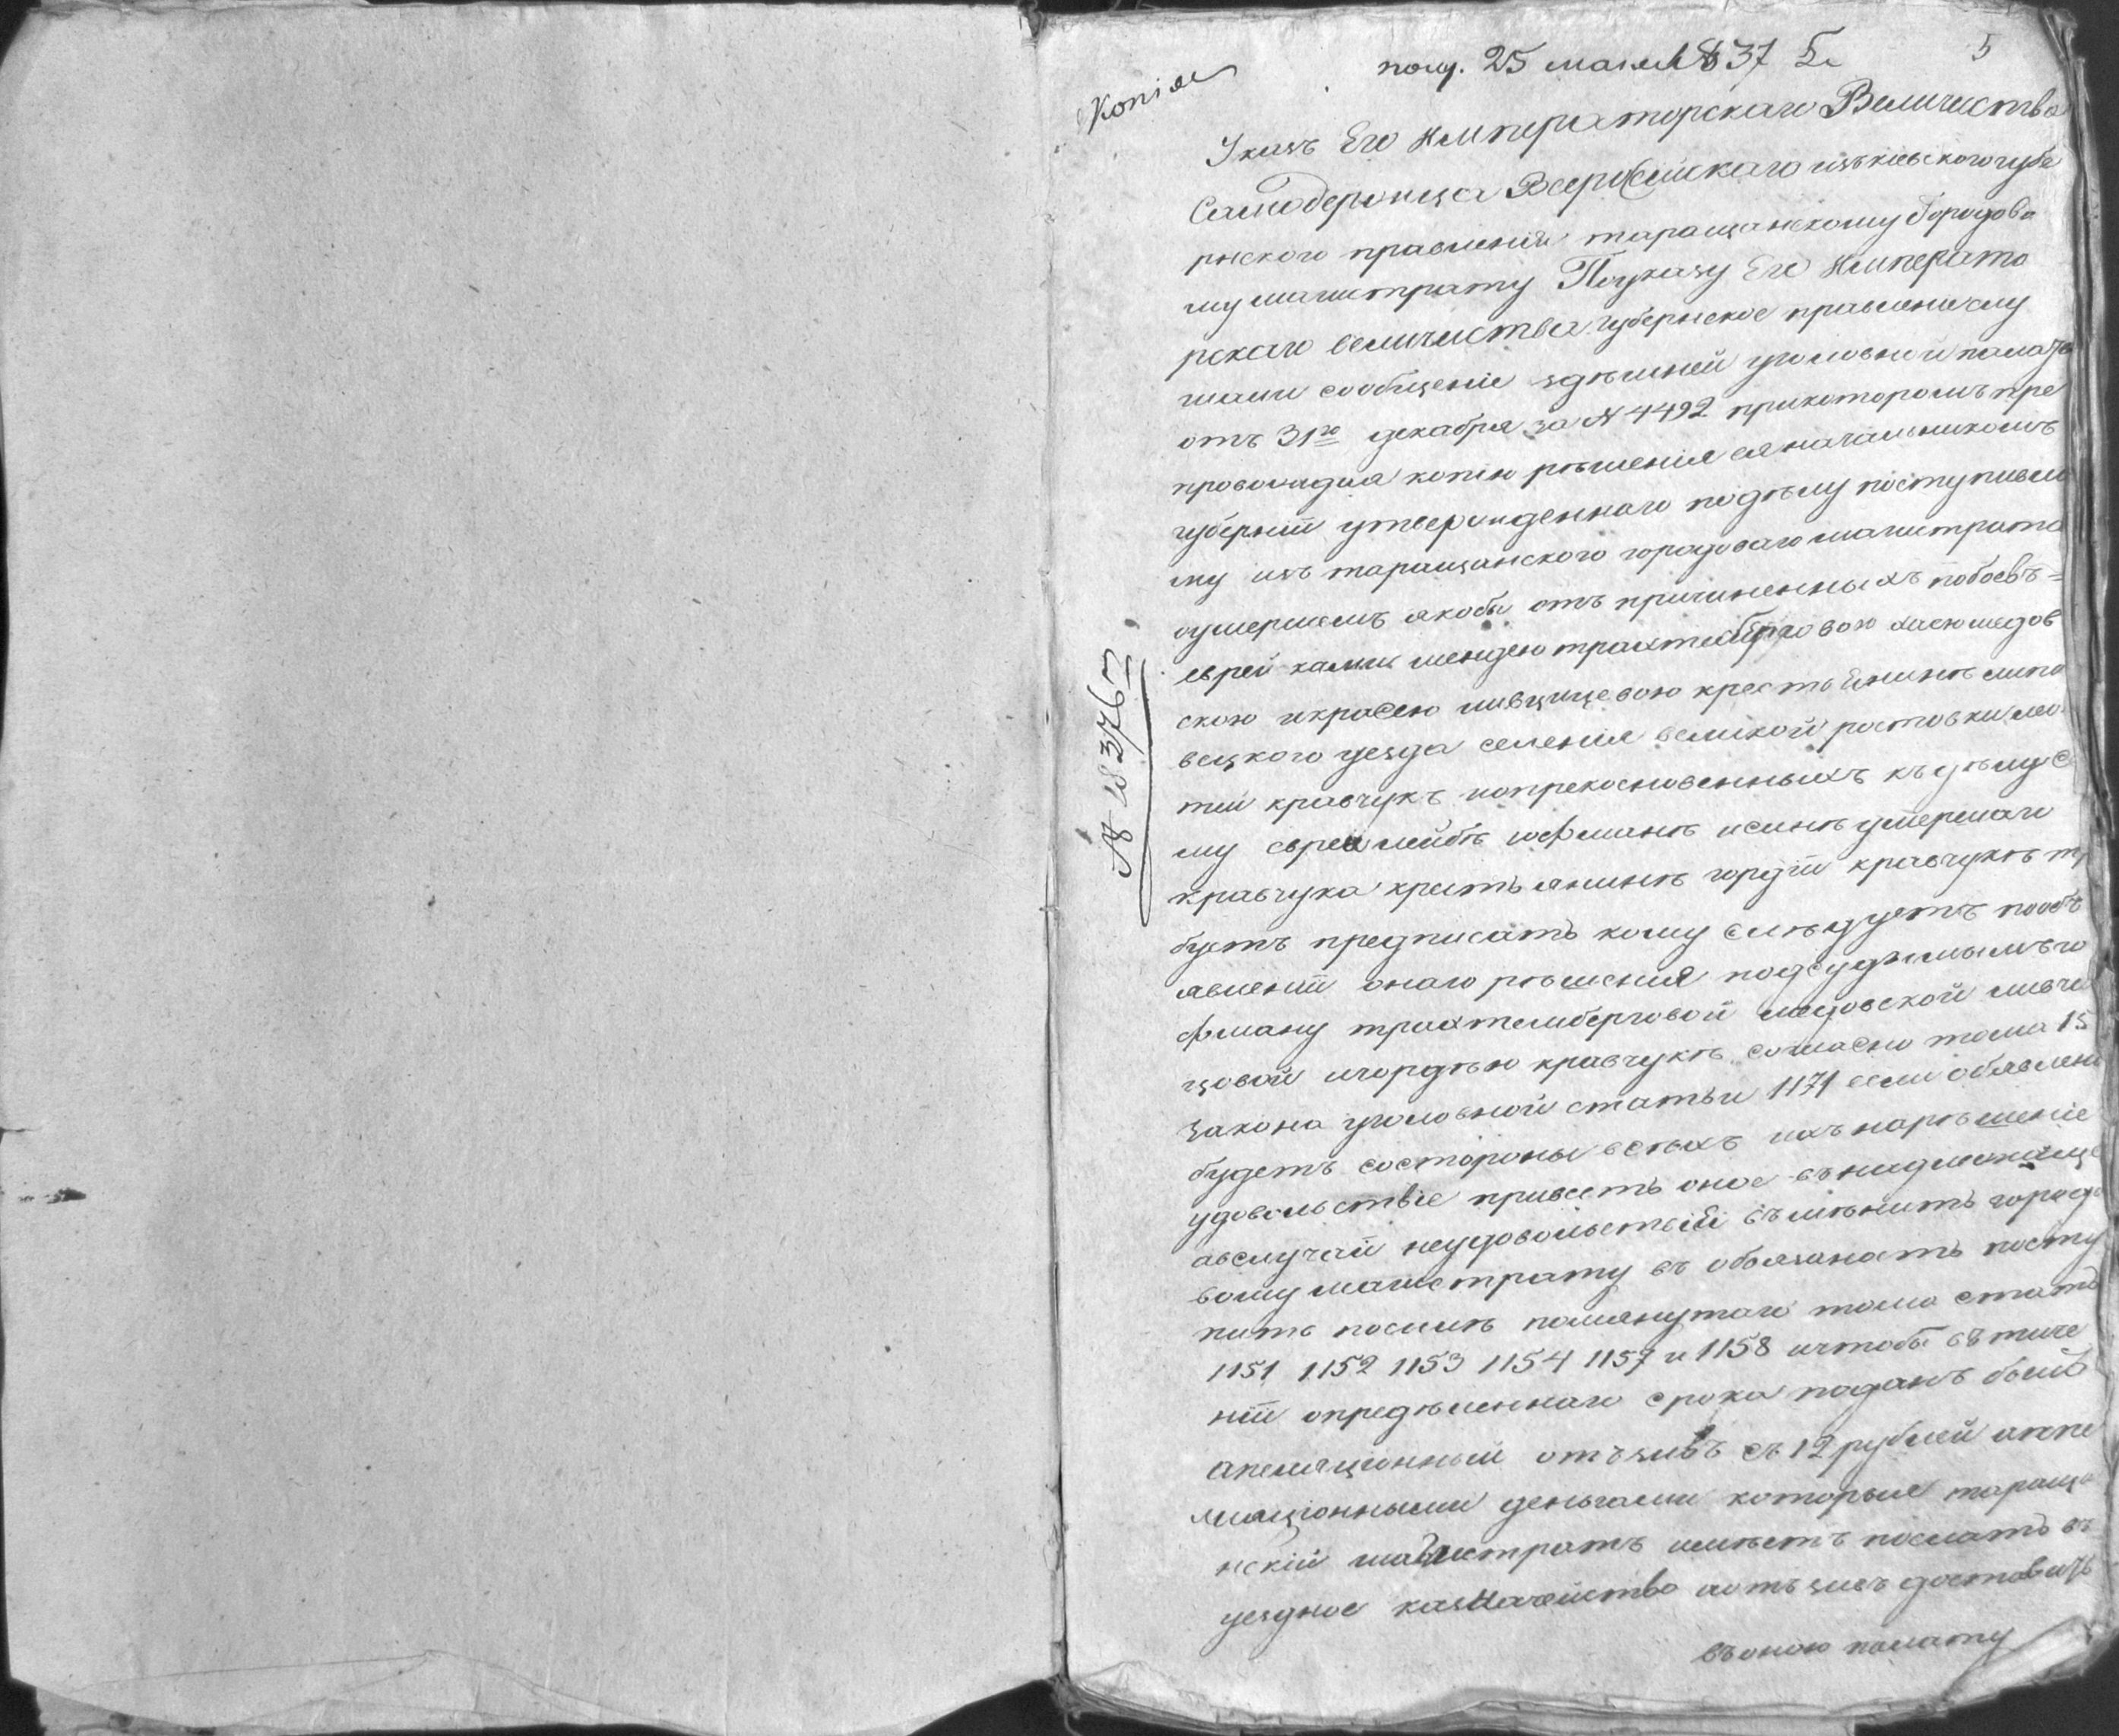 Копія
получ. 25 мая 1837 5
Указъ Его Императорскаго Величества
Самодержица Всеросійскаго изъ кіевского губе
рнского правленія таращанскому городово
му магистрату По указу Его Императо
рскаго величества губернское правленіе слу
шали сообщеніе здѣшней уголовной палаты
отъ 31го декабря за № 4492 прикоторомъ пре
провождая копію рѣшенія ея начальникомъ
губерніи утвержденнаго подѣлу поступивше
му изъ таращанского городоваго магистрата
оумершемъ якобы отъ причиненныхъ побоевъ =
еврей ками шендею трахтембр̾говою хаею шедов
скою икрасею ливщицевою крестьянинѣ липо
вецкого уезда селенія великой ростовки лео
тій кравчукъ иоприкосновенныхъ къ дѣлу се
му евреи лейбѣ гофманѣ исынѣ умершаго
кравчука крестьянинѣ гордіи кравчукѣ тр
буетъ предписать кому слѣдуетъ пообъ
явленіи онаго рѣшенія подсудимымъ го
фману трахтемберговой шедовской ливчи
цовой игордѣю кравчукѣ согласно тома 15
закона уголовной статьи 1171 если объявлено
будетъ состороны всѣхъ ихъ нарѣшеніе
удовольствіе привесть оное въ надлежаще
авслучаи неудовольствій вмѣнить городо
вому магистрату въ обязанать посту
пить посилѣ помянутаго тома стать
1151 1152 1153 1154 1157 и 1158 ичтобы въ тече
ніи опредѣленнаго срока поданъ былъ
апеляціонный отъзывъ съ 12 рублей аппе
ляціонными деньгами которые тараща
нскій магистратъ имѣетъ послать въ
уездное казначейство иотъзывъ доставить
въ оною палату